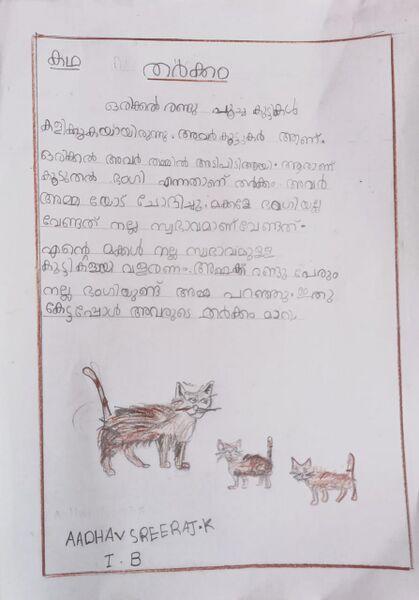 കഥ
തർക്കം
ഒരിക്കൽ രണ്ടു പൂച്ച കുട്ടികൾ
കളിക്കുകയായിരുന്നു. അവർ കൂട്ടുകർ ആണ്.
ഒരിക്കൽ അവർ തമ്മിൽ അടിപിടിആയി. ആരാണ്
കൂടുതൽ ഭംഗി എന്നതാണ് തർക്കം അവർ
അമ്മ യോട് ചോദിച്ചു. മക്കളേ ഭംഗിയല്ല
വേണ്ടത് നല്ല സ്വഭാവമാണ് വേണ്ടത്.
എന്റെ മക്കൾ നല്ല സ്വഭാവമുള്ള
കുട്ടികളായി വളരണം. രണ്ടു പേരും
നല്ല ഭംഗിയുണ്ട് അമ്മ പറഞ്ഞു. ഇതു
കേട്ടപ്പോൾ അവരുടെ തർക്കം മാറി.
AADHAV SREERAJ.K
I. B